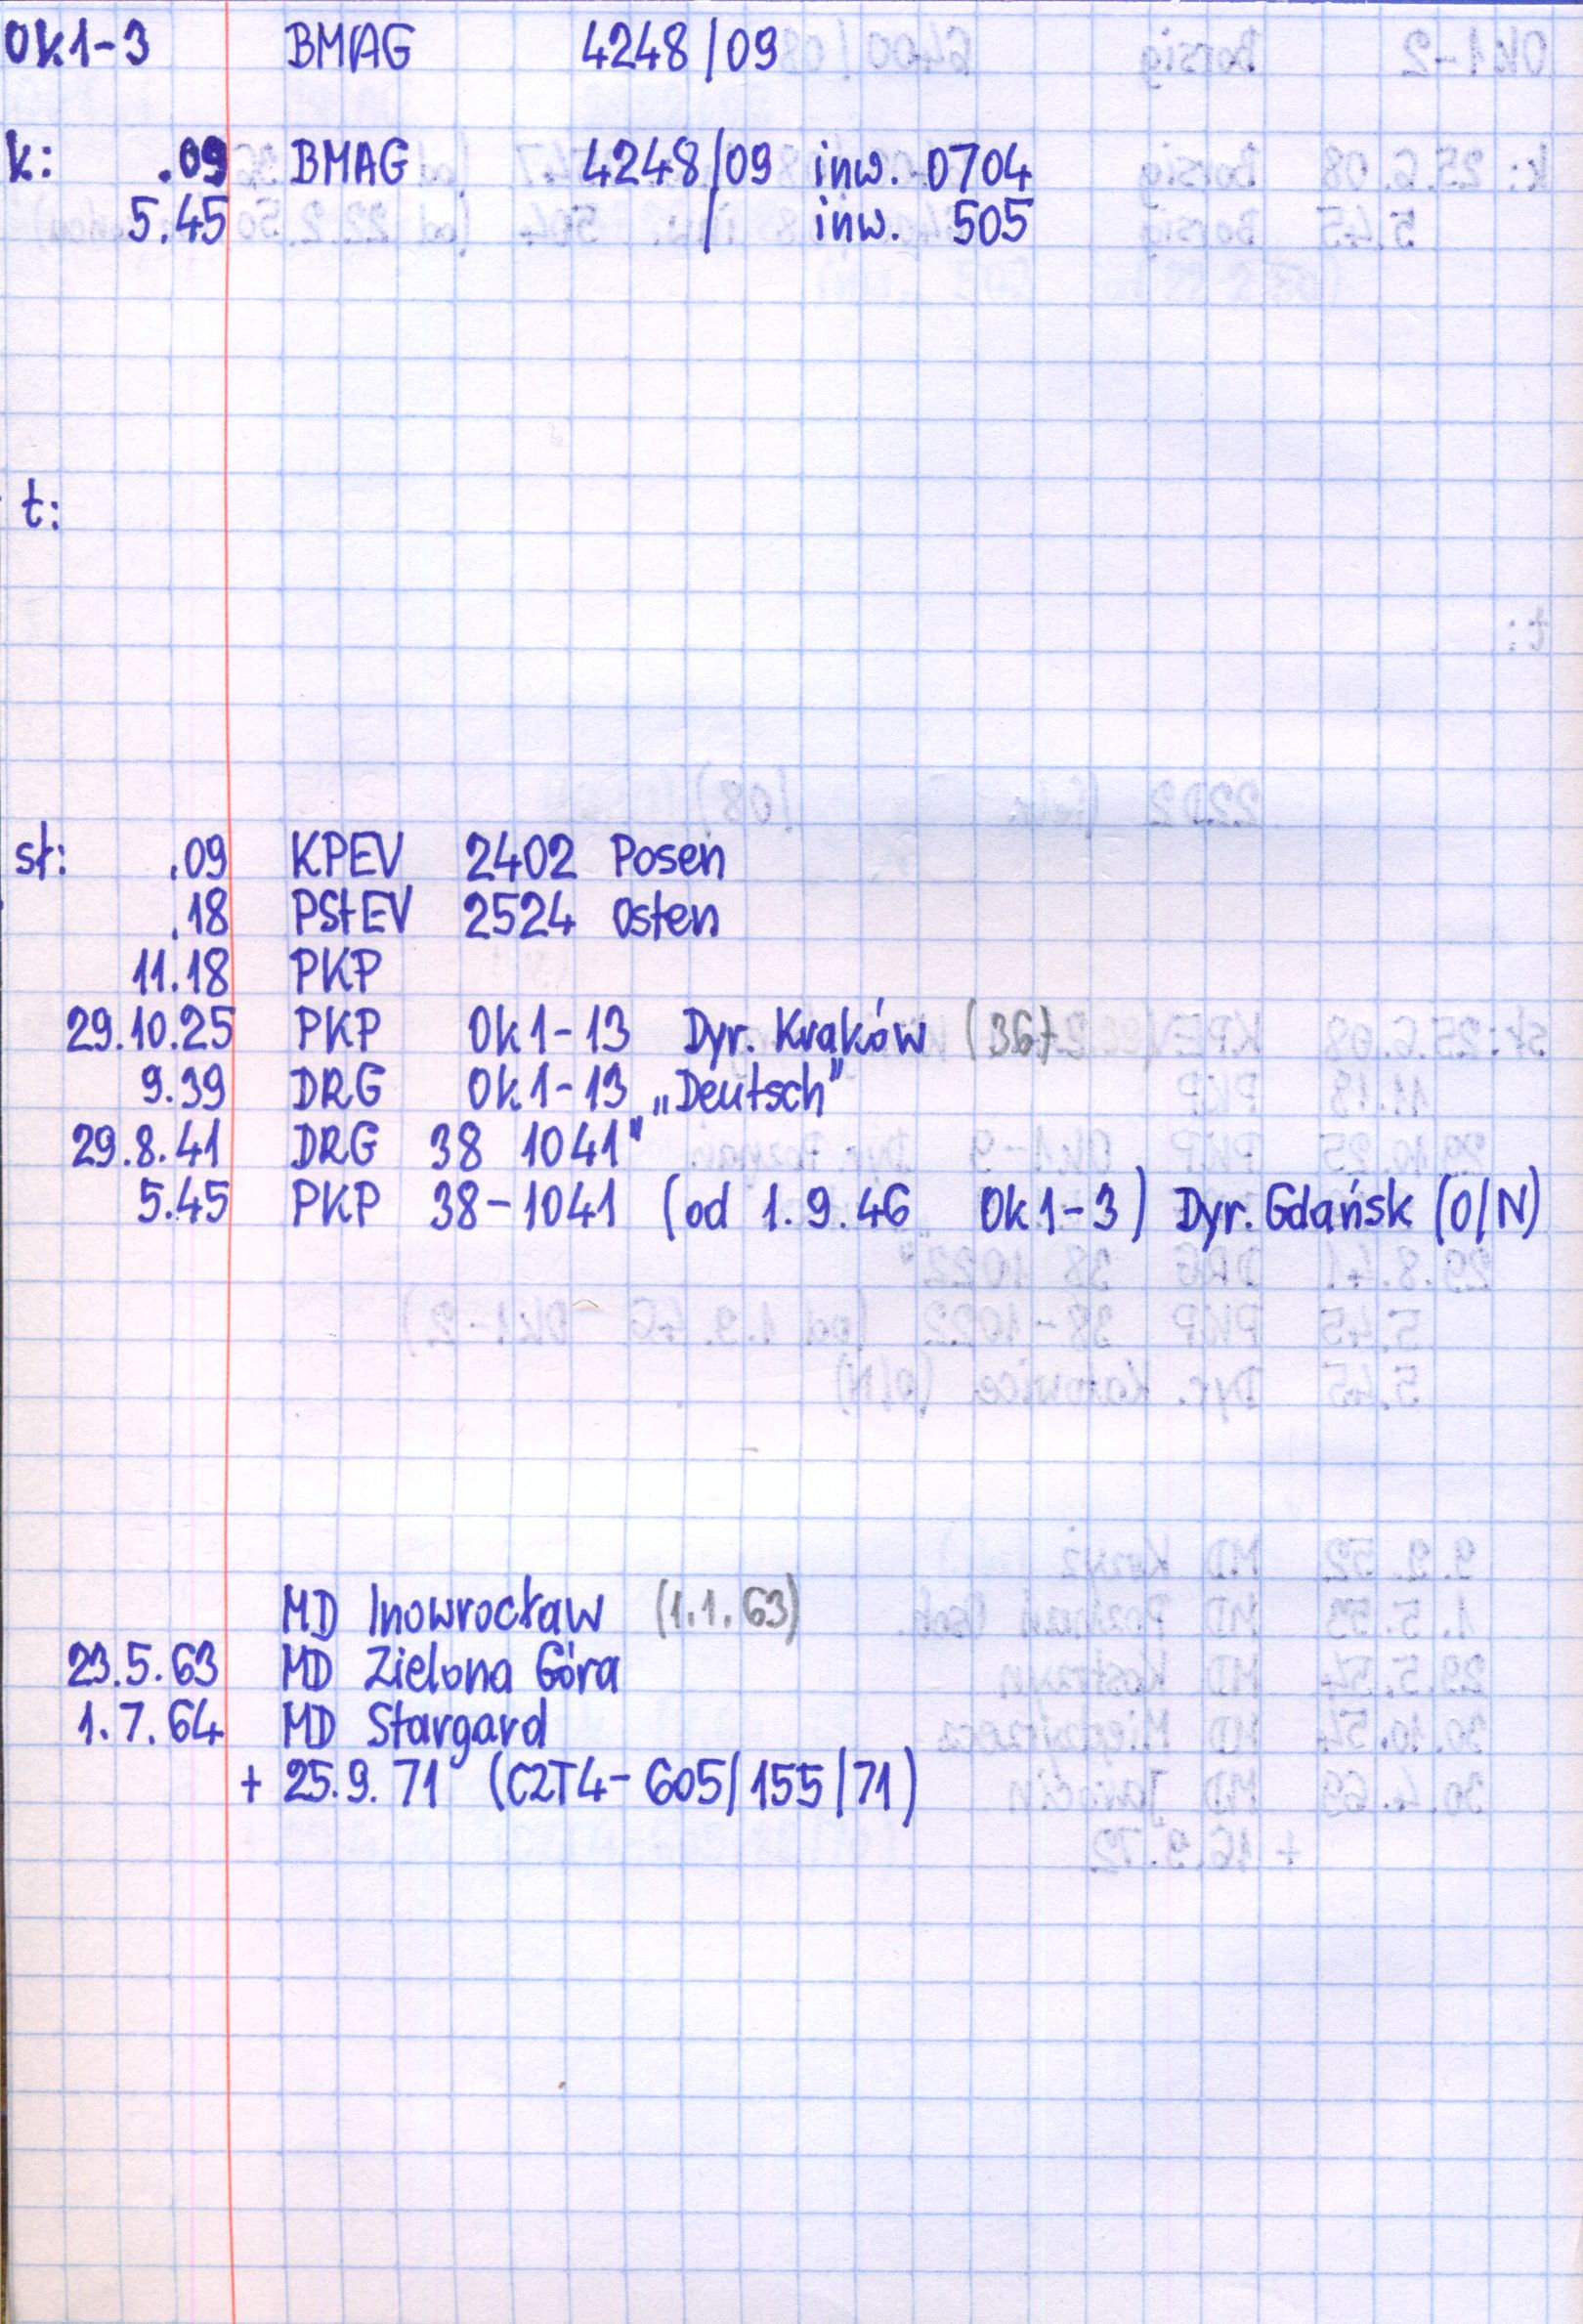 Ok1-3 BMAG 4248/09
k: .09 BMAG 4248/09 inw. 0704
5.45 / inw. 505
t:
sł: .09 KPEV 2402 Posen
.18 PStEV 2524 Osten
11.18 PKP
29.10.25 PKP Ok1-13 Dyr. Kraków (36)
9.39 DRG Ok1-13 „Deutsch"
29.8.41 DRG 38 1041"
5.45 PKP 38-1041 (od 1.9.46 Ok1-3) Dyr. Gdańsk (O/N)
MD Inowrocław (1.1.63)
23.5.63 MD Zielona Góra
1.7.64 MD Stargard
+ 25.9.71 (CZT4-605/155/71)